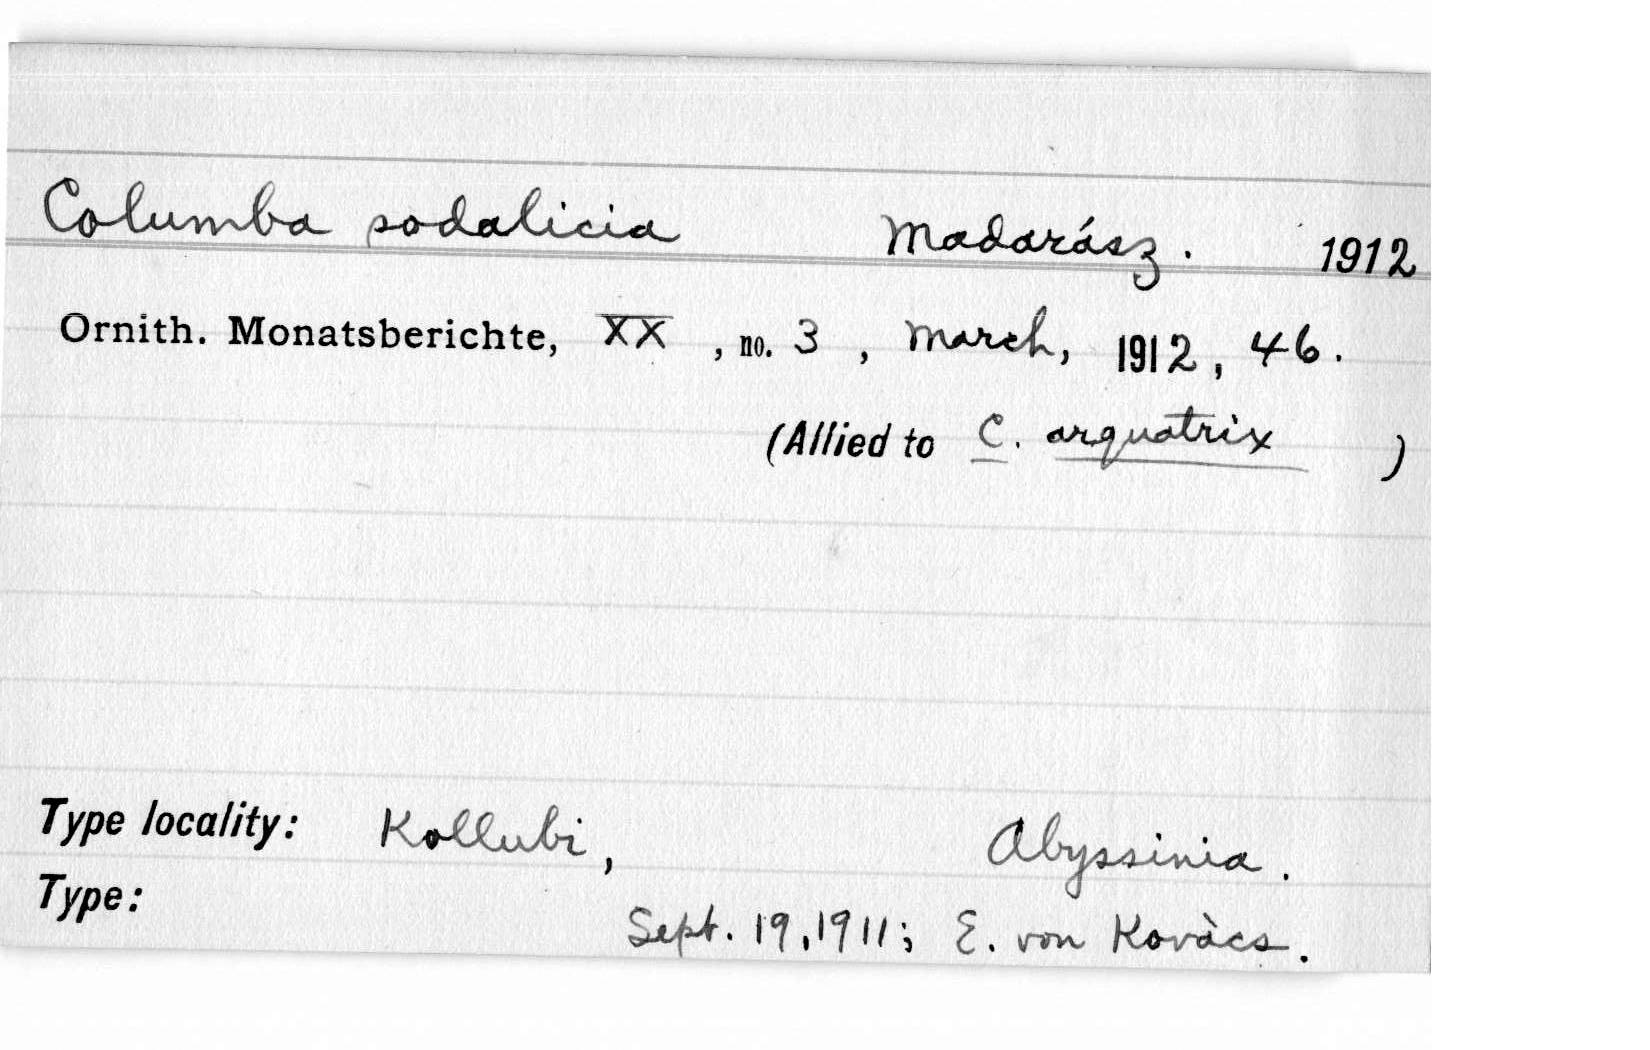 Columba sodalicia Madarász. 1912
Ornith. Monatsberichte, XX, no. 3, March, 1912, 46.
(Allied to C. arquatrix )
Type locality: Kollubi, Abyssinia.
Type:
Sept. 19, 1911; E. von Kovàcs.